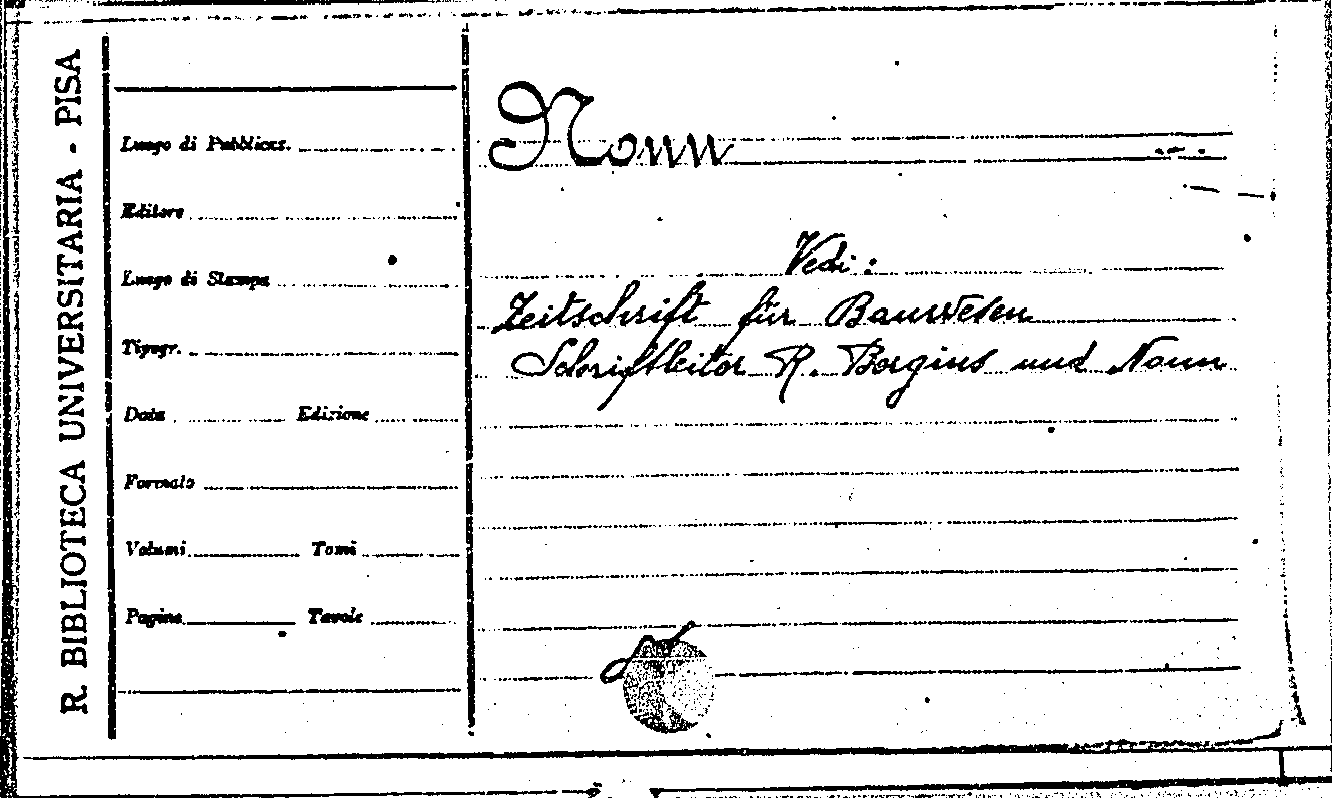 R. BIBLIOTECA UNIVERSITARIA - PISA
Luogo di Pubblicaz.
Editore
Luogo di Stampa
Tipogr.
Data Edizione
Formato
Volumi Tomi
Pagine Tavole
Nonn
Vedi:
Zeitschrift für Bauwesen
Schriftleitor R. Borgius und Nonn